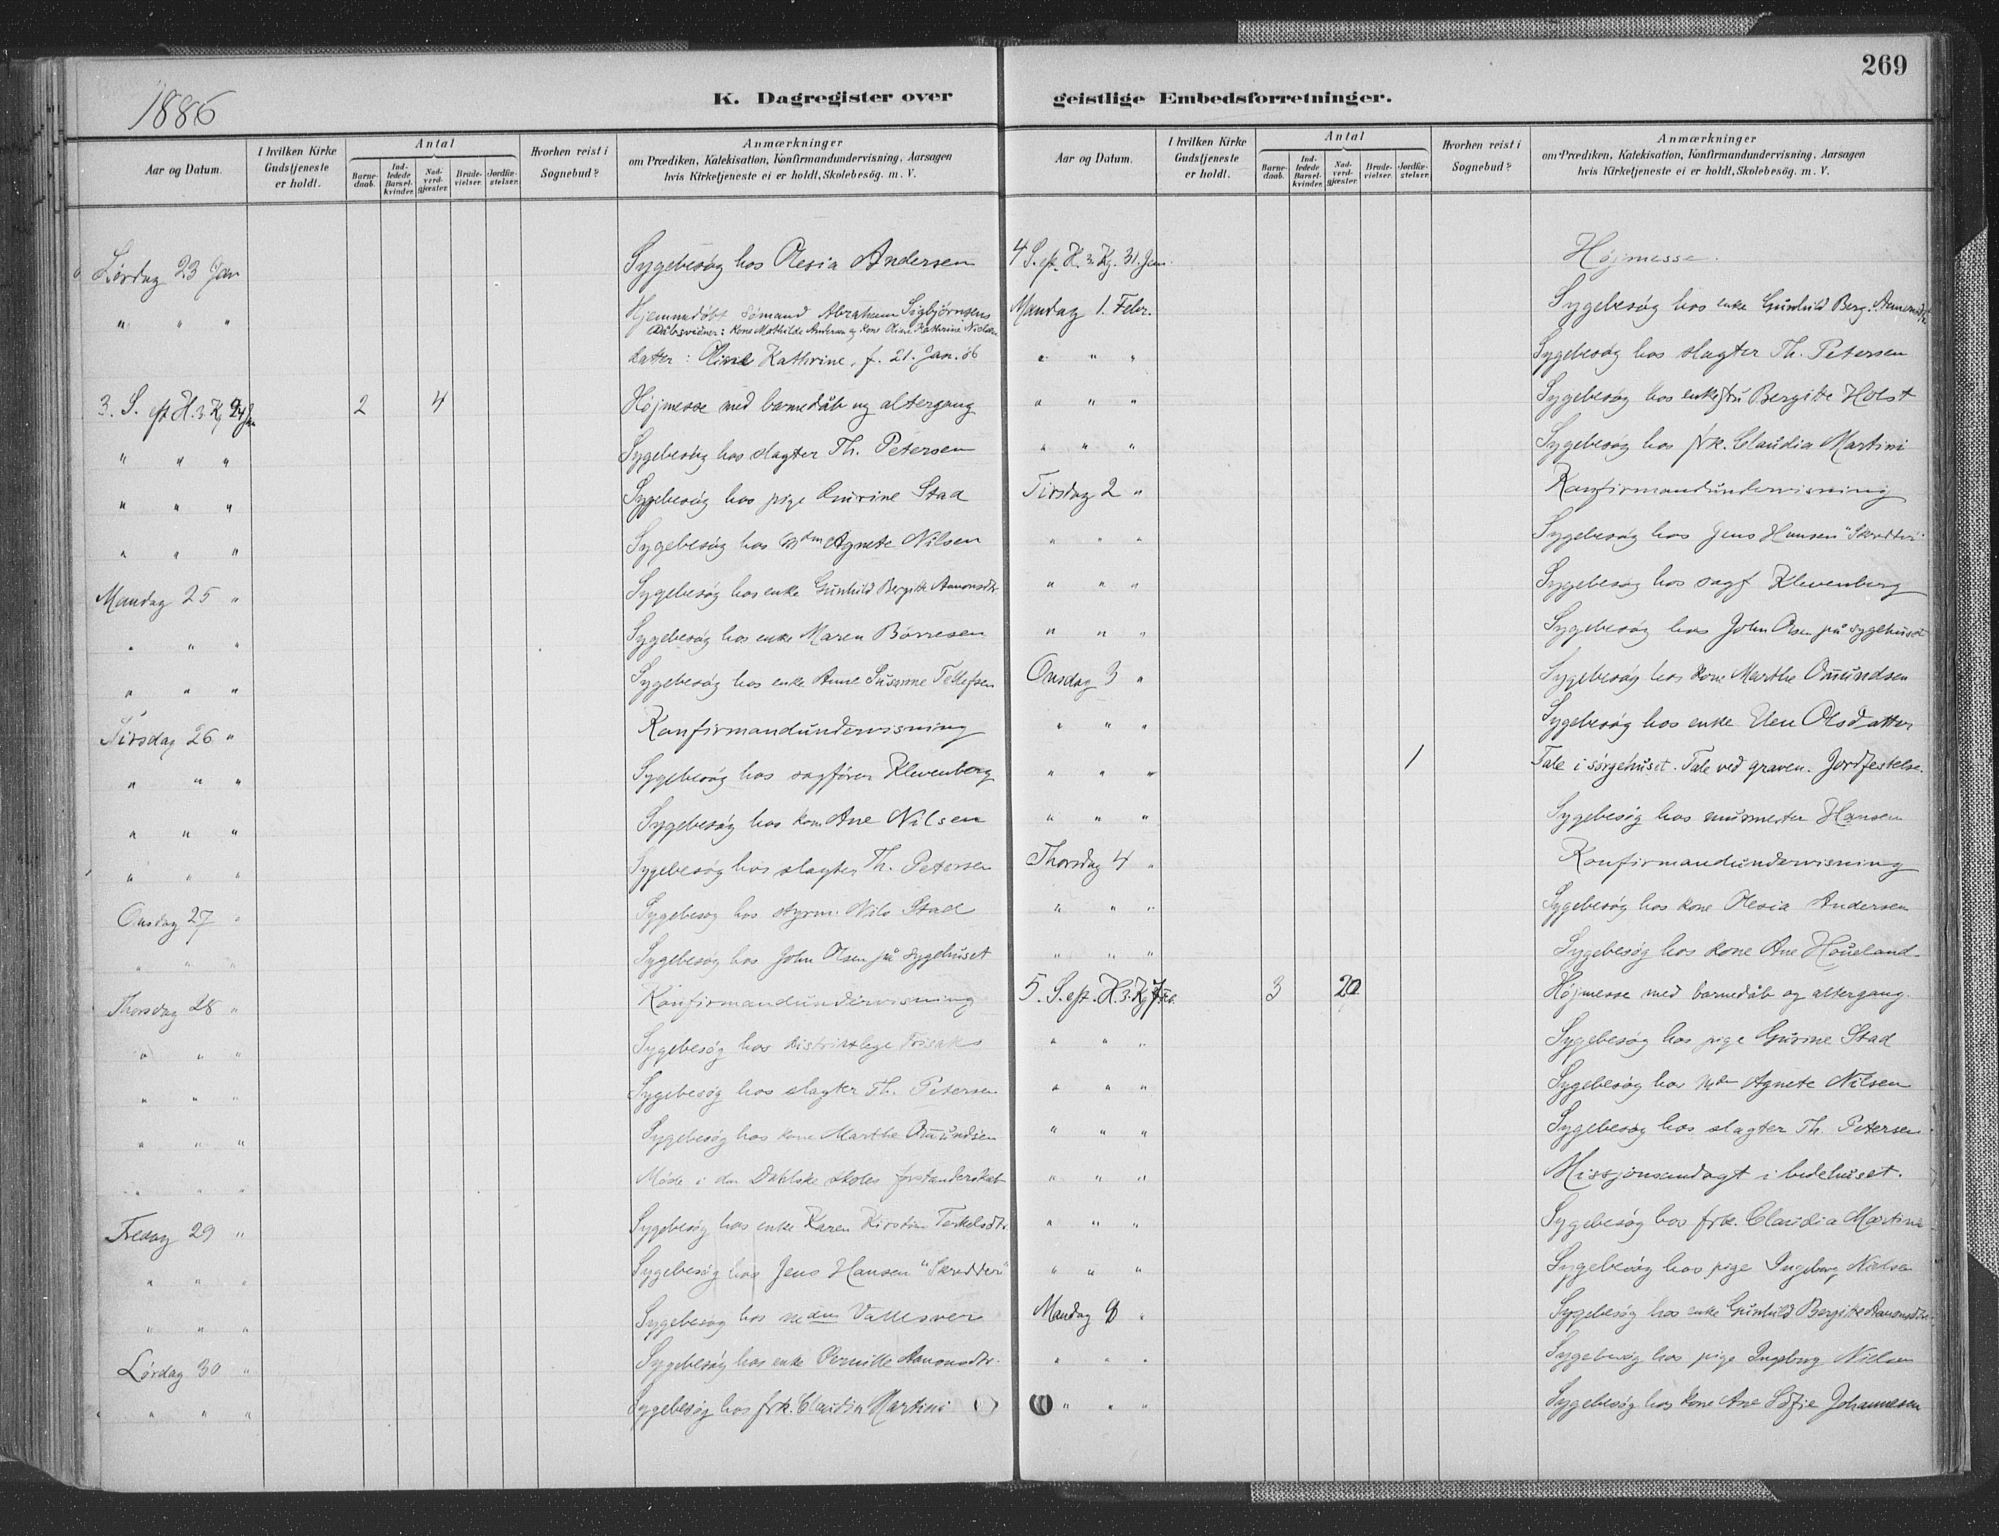 269
1886
K. Dagregister over geistlige Embedsforretninger.
Aar og Datum.
I hvilken Kirke Gudstjeneste er holdt.
Antal
Barnedaab.
Indledede Barselkvinder.
Nadverdgjæster.
Brudevielser.
Jordfæstelser.
Hvorhen reist i Sognebud?
Anmærkninger
om Prædiken, Katekisation, Konfirmandundervisning, Aarsagen
hvis Kirketjeneste ei er holdt, Skolebesög. m. V.
Lørdag 23 Jan Sygebesøg hos Olesia Andersen
" " " Hjemmedøbt sømand Abraham Sigbjørnsens
Dåbsvidner: Kone Mathilde Andersen og kone Oline Kathrine Nielsen
datter: Oline Kathrine, f. 21. Jan. 86
3. S. eft H. 3. K. 24 Jan 2 4 Højmesse med barnedåb og altergang
" " " Sygebesøg hos slagter Th. Petersen
" " " Sygebesøg hos pige Gurine Stad
" " " Sygebesøg hos Mdm Agnete Nilsen
Mandag 25 " Sygebesøg hos enke Gunhild Bergitte Aanonsdtr.
" " " Sygebesøg hos enke Maren Børresen
" " " Sygebesøg hos enke Anne Susanne Tellefsen
Tirsdag 26 " Konfirmandundervisning
" " " Sygebesøg hos sagfører Klevenberg
" " " Sygebesøg hos kone Ane Nilsen
" " " Sygebesøg hos slagter Th. Petersen
Onsdag 27 " Sygebesøg hos styrm. Nils Stad
" " " Sygebesøg hos John Olsen på sygehuset
Thorsdag 28 " Konfirmandundervisning
" " " Sygebesøg hos distriktslæge Frisak
" " " Sygebesøg hos slagter Th. Petersen
" " " Sygebesøg hos kone Marthe Omundsen
" " " Møde i den Dahlske skoles forstanderskab
Fredag 29 " Sygebesøg hos enke Karen Kirstine Terkelsdtr.
" " " Sygebesøg hos Jens Hansen "Skredderi"
" " " Sygebesøg hos mdm Vallesverd
Lørdag 30 " Sygebesøg hos enke Pernille Aanonsdtr.
" " " Sygebesøg hos frk. Claudia Martini
Aar og Datum.
I hvilken Kirke Gudstjeneste er holdt.
Antal
Barnedaab.
Indledede Barselkvinder.
Nadverdgjæster.
Brudevielser.
Jordfæstelser.
Hvorhen reist i Sognebud?
Anmærkninger
om Prædiken, Katekisation, Konfirmandundervisning, Aarsagen
hvis Kirketjeneste ei er holdt, Skolebesög. m. V.
4 S. eft. H. 3. Kg. 31. Jan. Højmesse.
Mandag 1. Febr. Sygebesøg hos enke Gunhild Berg. Aanonsdtr
" " " Sygebesøg hos slagter Th. Petersen
" " " Sygebesøg hos enkefru Bergitte Holst
" " " Sygebesøg hos frk. Claudia Martini
Tirsdag 2 " Konfirmandundervisning
" " " Sygebesøg hos Jens Hansen
" " " Sygebesøg hos sagf Klevenberg
" " " Sygebesøg hos John Olsen på sygehuset
Onsdag 3 " Sygebesøg hos kone Marthe Omundsen
" " " Sygebesøg hos enke Elen Olsdatter
" " " 1 Tale i sørgehuset. Tale ved graven. Jordfestelse.
" " " Sygebesøg hos murmester Hansen
Thorsdag 4 " Konfirmandundervisning
" " " Sygebesøg hos kone Olesia Andersen
" " " Sygebesøg hos kone Ane Houeland
5. S. eft. H. 3. Kg 7 Feb. 3 20 Højmesse med barnedåb og altergang.
" " " Sygebesøg hos pige Gurine Stad
" " " Sygebesøg hos Mdm Agnete Nilsen
" " " Sygebesøg hos slagter Th. Petersen
" " " Missjonsandagt i bedehuset.
" " " Sygebesøg hos frk. Claudia Martini
" " " Sygebesøg hos pige Ingeborg Nielsen
Mandag 8 " Sygebesøg hos enke Gunhild Bergitte Aanonsdtr.
" " " Sygebesøg hos pige Ingeborg Nielsen
" " " Sygebesøg hos kone Ane Sofie Johannesen